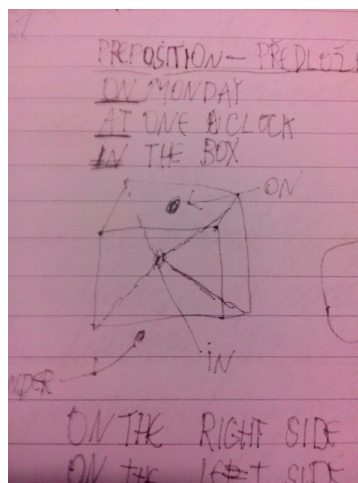 PREPOSITION - PREDLOZ
ON MONDAY
AT ONE O CLOCK
IN THE BOX
ON
IN
NDER
ON THE RIGHT SIDE
ON THE LEFT SIDE